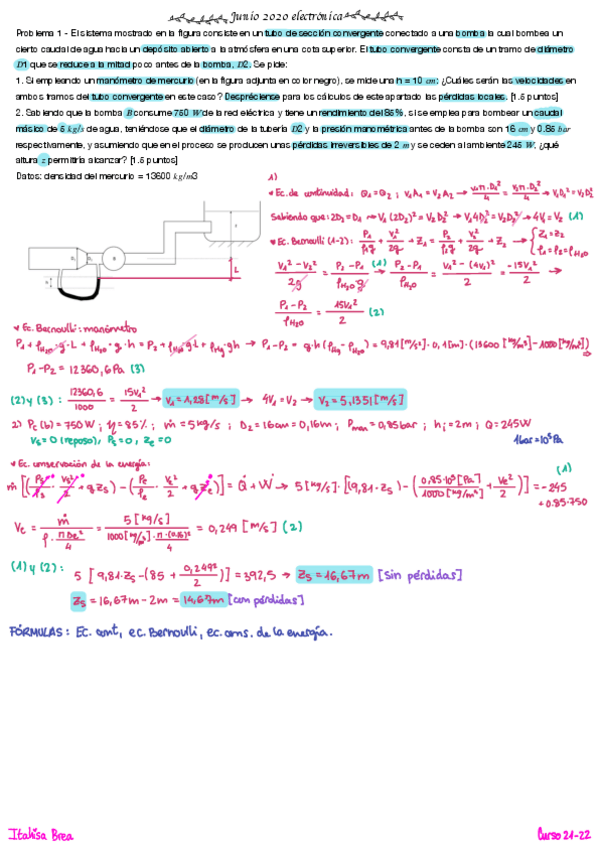 Junio 2020 electrónica
Problema 1 - El sistema mostrado en la figura consiste en un tubo de sección convergente conectado a una bomba la cual bombea un
cierto caudal de agua hacia un depósito abierto a la atmósfera en una cota superior. El tubo convergente consta de un tramo de diámetro
D1 que se reduce a la mitad poco antes de la bomba, D2. Se pide:
1. Si empleando un manómetro de mercurio (en la figura adjunta en color negro), se mide una h = 10 cm: ¿Cuáles serán las velocidades en
ambos tramos del tubo convergente en este caso? Despréciense para los cálculos de este apartado las pérdidas locales. [1.5 puntos]
2. Sabiendo que la bomba B consume 750 W de la red eléctrica y tiene un rendimiento del 85%, si se emplea para bombear un caudal
másico de 5 kg/s de agua, teniéndose que el diámetro de la tubería D2 y la presión manométrica antes de la bomba son 16 cm y 0.85 bar
respectivamente, y asumiendo que en el proceso se producen unas pérdidas irreversibles de 2 m y se ceden al ambiente 245 W, ¿qué
altura z permitiría alcanzar? [1.5 puntos]
Datos: densidad del mercurio = 13600 kg/m3
1)
* Ec. de continuidad: Q₁ = Q₂ ; V₁A₁ = V₂A₂ → V₁π·D₁²/4 = V₂π·D₂²/4 → V₁D₁² = V₂D₂²
Sabiendo que: 2D₂ = D₁ → V₁(2D₂)² = V₂D₂² → V₁4D₂² = V₂D₂² → 4V₁ = V₂ (1)
* Ec. Bernoulli (1-2): P₁/ρ₁g + V₁²/2g + z₁ = P₂/ρ₂g + V₂²/2g + z₂ → { z₁ = z₂ ρ₁ = ρ₂ = ρH₂O
V₁² - V₂²/2g = P₂ - P₁/ρH₂O·g (1) → P₂ - P₁/ρH₂O = V₁² - (4V₁)²/2 = -15V₁²/2 →
P₁ - P₂/ρH₂O = 15V₁²/2 (2)
L
* Ec. Bernoulli: manómetro
P₁ + ρH₂O·g·L + ρH₂O·g·h = P₂ + ρH₂O·g·L + ρHg·g·h → P₁ - P₂ = g·h(ρHg - ρH₂O) = 9,81[m/s²]·0,1[m]·(13600 [kg/m³] - 1000[kg/m³]) ⇒
P₁ - P₂ = 12360,6 Pa (3)
(2) y (3) : 12360,6/1000 = 15V₁²/2 → V₁ = 1,28 [m/s] → 4V₁ = V₂ → V₂ = 5,1351 [m/s]
2) Pc (b) = 750 W ; η = 85% ; ṁ = 5 kg/s ; D₂ = 16cm = 0,16m ; Pman = 0,85 bar ; hi = 2m ; Q = 245W
Vs = 0 (reposo), Ps = 0, ze = 0
1bar = 10⁵ Pa
* Ec. conservación de la energía:
ṁ [(Ps/ρs + Vs²/2 + g zs) - (Pe/ρe + Ve²/2 + g ze)] = Q̇ + Ẇ → 5 [kg/s]·[(9,81·zs) - (0,85·10⁵[Pa]/1000[kg/m³] + Ve²/2)] = -245 + 0.85·750 (1)
Ve = ṁ/ρ·πDe²/4 = 5 [kg/s]/1000[kg/m³]·π·(0.16)²/4 = 0,249 [m/s] (2)
(1) y (2) : 5 [9,81·zs - (85 + 0,249²/2)] = 392,5 → zs = 16,67m [sin pérdidas]
zs = 16,67m - 2m = 14,67m [con pérdidas]
FÓRMULAS: Ec. cont, ec. Bernoulli, ec. cons. de la energía.
Itahisa Brea
Curso 21-22